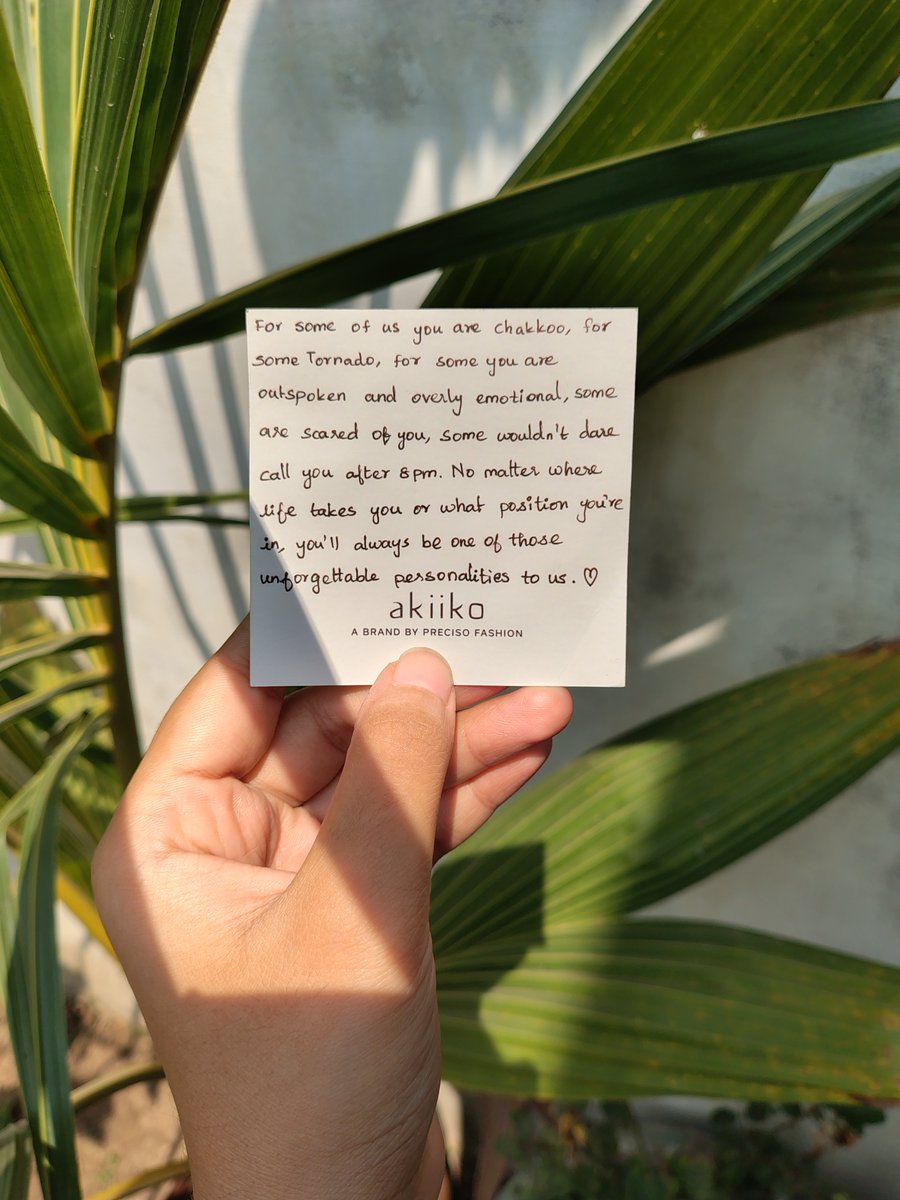 For some of us you are Chakkoo, for
some Tornado, for some you are
outspoken and overly emotional, some
are scared of you, some wouldn't dare
call you after 8pm. No matter where
life takes you or what position you're
in, you'll always be one of those
unforgettable personalities to us. ♡
akiiko
A BRAND BY PRECISO FASHION